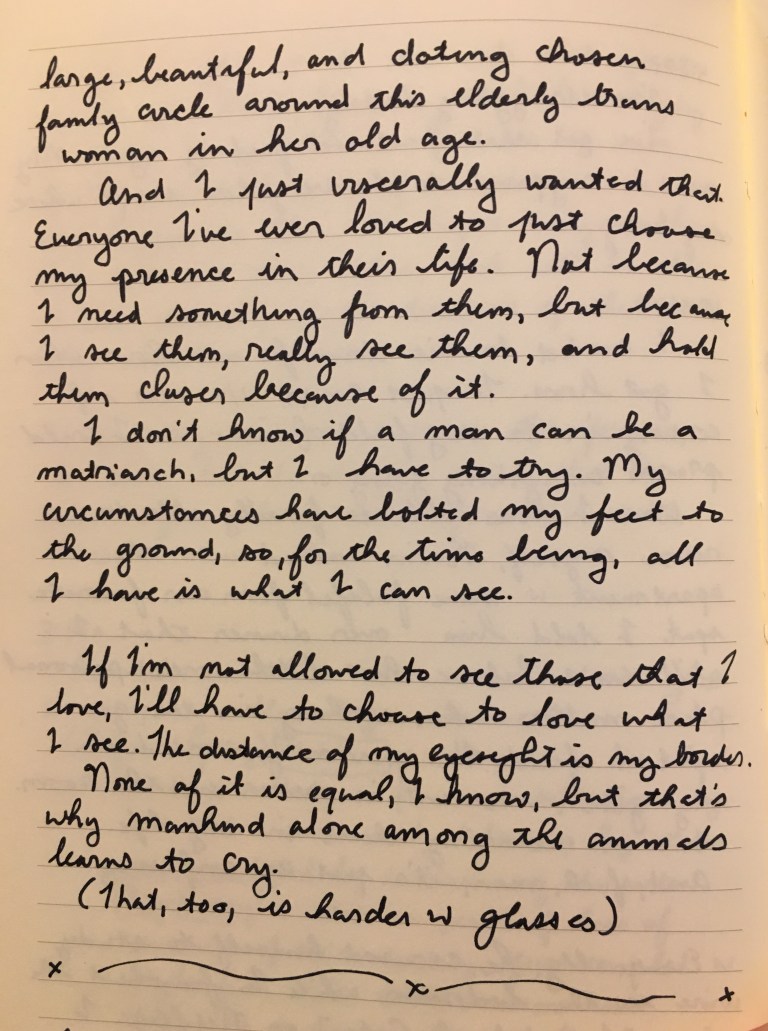 large, beautiful, and doting chosen
family circle around this elderly trans
woman in her old age.
And I just viscerally wanted that.
Everyone I've ever loved to just choose
my presence in their life. Not because
I need something from them, but because
I see them, really see them, and hold
them closer because of it.
I don't know if a man can be a
matriarch, but I have to try. My
circumstances have bolted my feet to
the ground, so, for the time being, all
I have is what I can see.
If I'm not allowed to see those that I
love, I'll have to choose to love what
I see. The distance of my eyesight is my border.
None of it is equal, I know, but that's
why mankind alone among the animals
learns to cry.
(That, too, is harder w glasses)
x x x